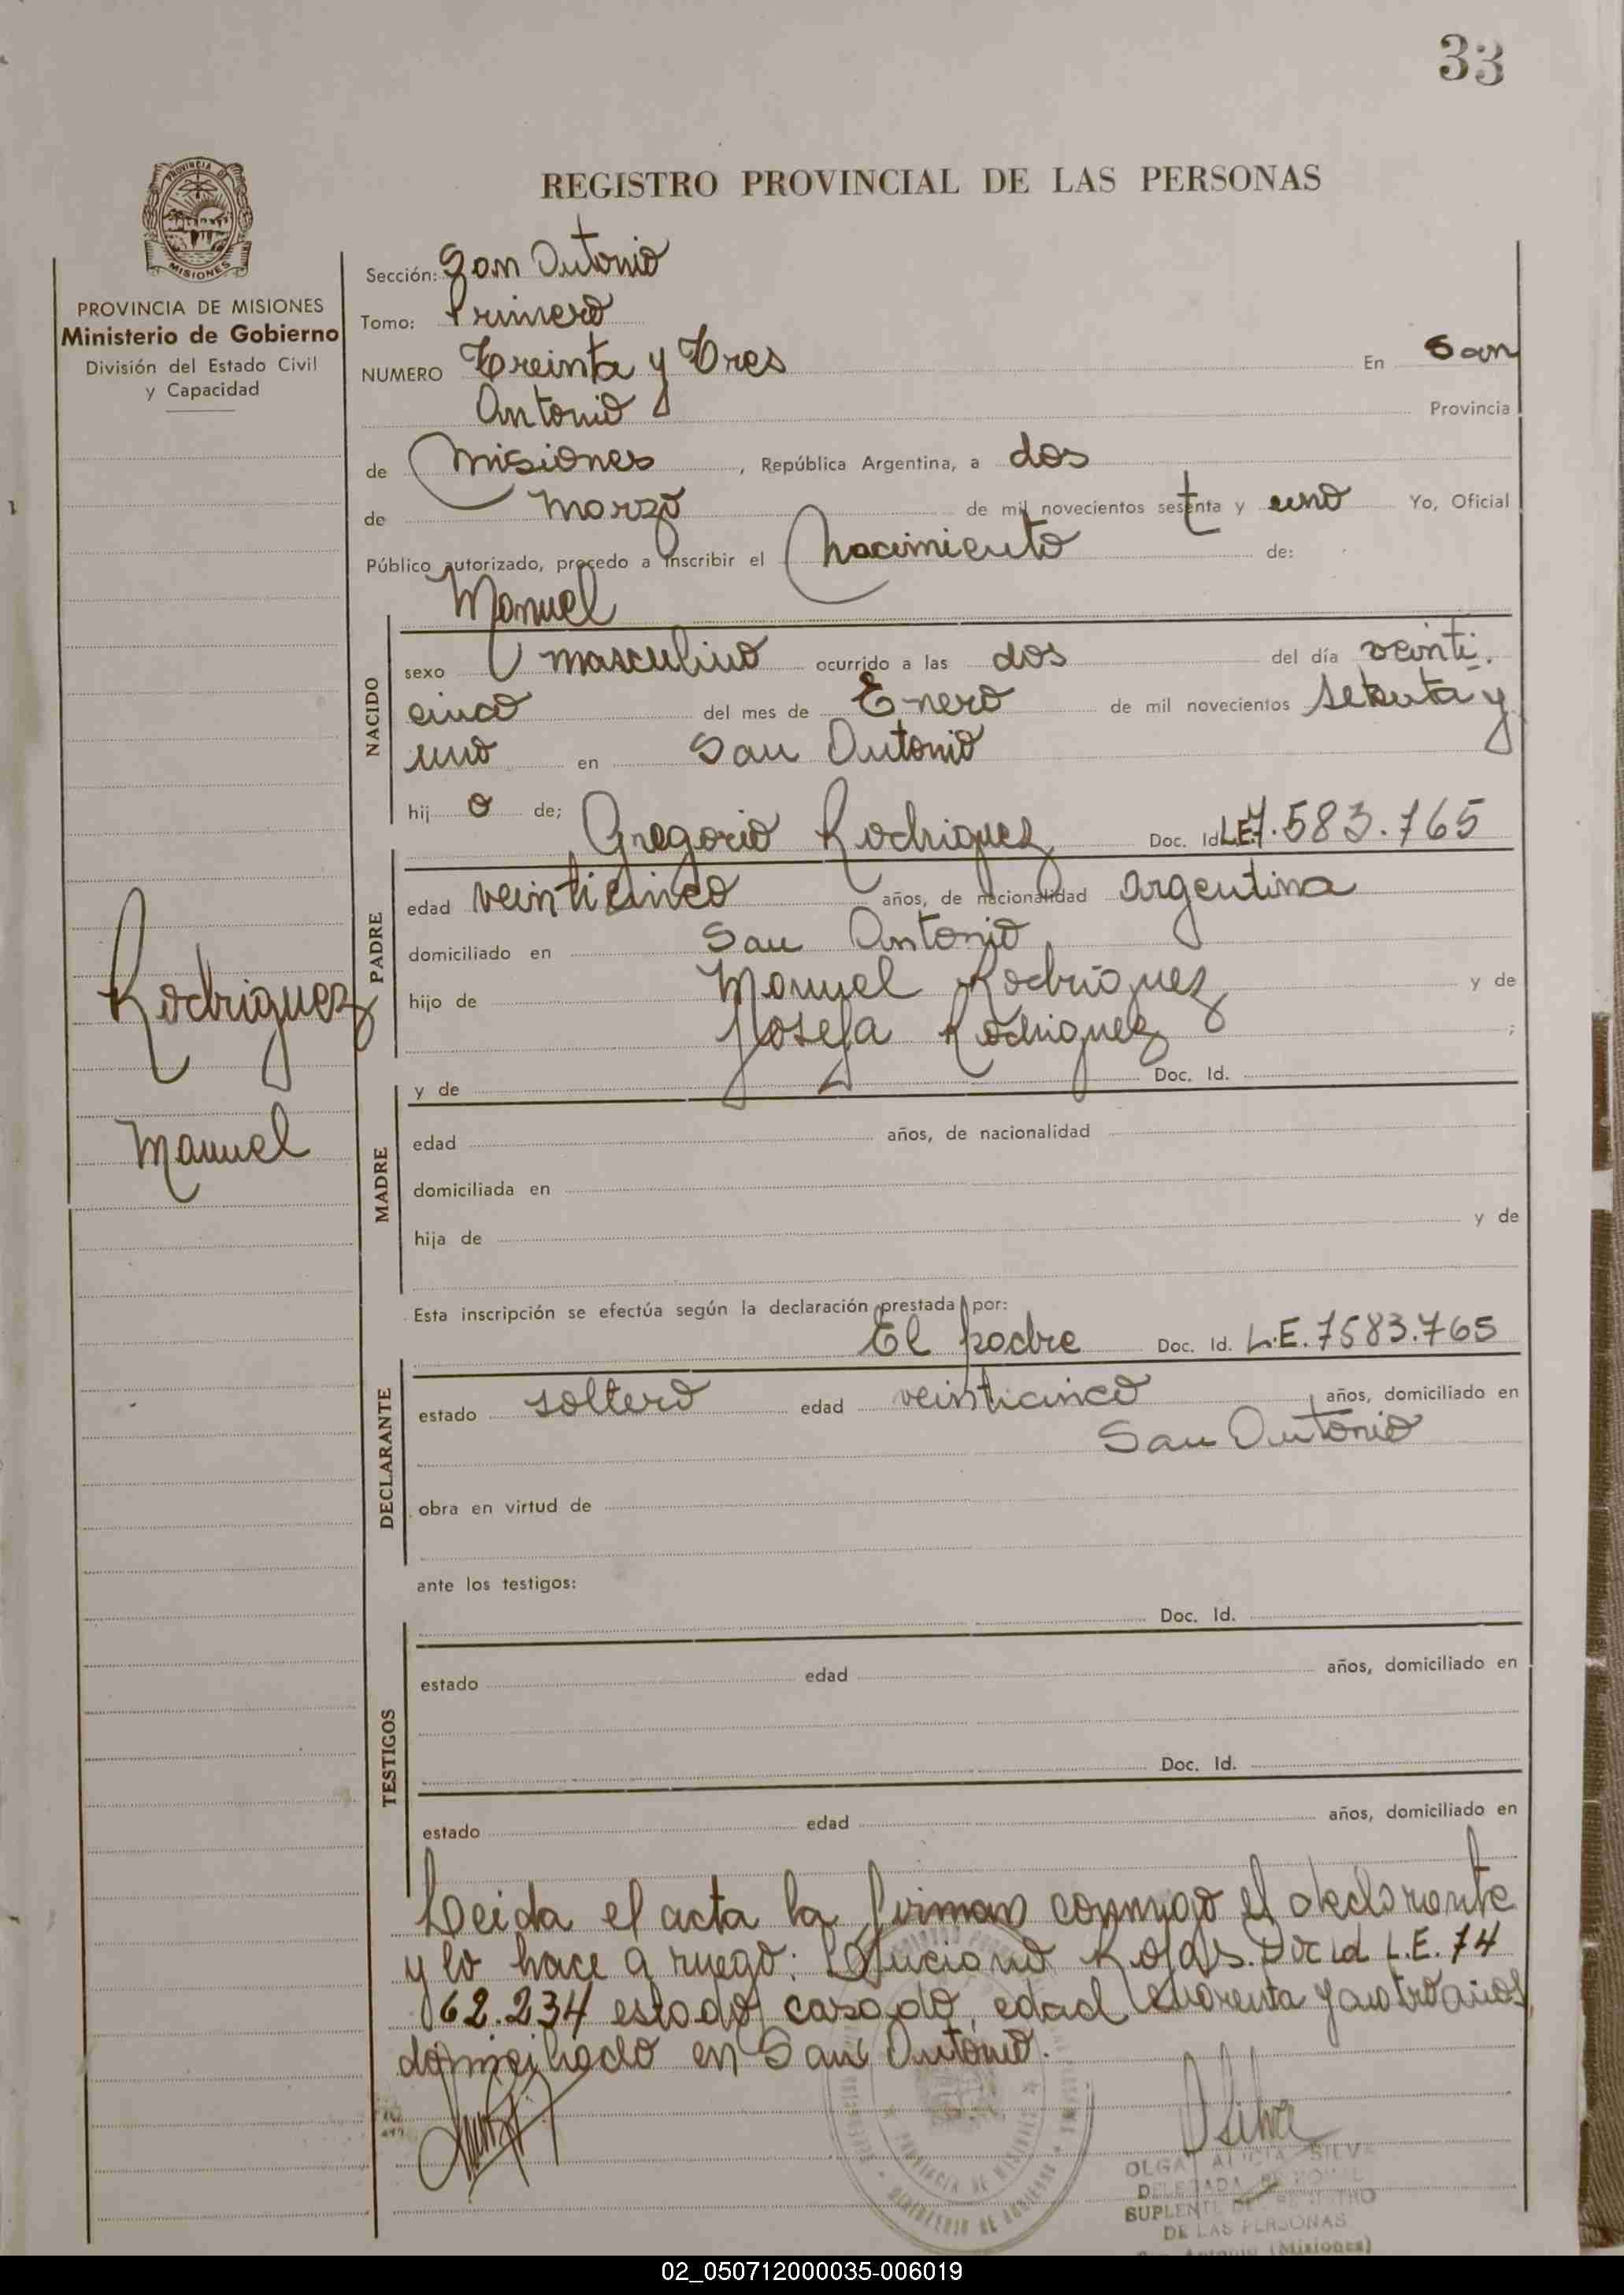 33
REGISTRO PROVINCIAL DE LAS PERSONAS
PROVINCIA DE MISIONES
MISIONES
PROVINCIA DE MISIONES
Ministerio de Gobierno
División del Estado Civil
y Capacidad
Rodriguez
Manuel
Sección: San Antonio
Tomo: Primero
NUMERO Treinta y Tres En San
Antonio Provincia
de Misiones, República Argentina, a dos
de Marzo de mil novecientos setenta y uno Yo, Oficial
Público autorizado, procedo a inscribir el Nacimiento de:
Manuel
NACIDO
sexo masculino ocurrido a las dos del día veinti.
cinco del mes de Enero de mil novecientos setenta y
uno en San Antonio
hij o de; Gregorio Rodriguez Doc. Id. L.E. 7.583.765
PADRE
edad veinticinco años, de nacionalidad argentina
domiciliado en San Antonio
hijo de Manuel Rodriguez y de
Josefa Rodriguez ;
y de Doc. Id.
MADRE
edad años, de nacionalidad
domiciliada en
hija de y de
Esta inscripción se efectúa según la declaración prestada por:
El padre Doc. Id. L.E. 7583.765
DECLARANTE
estado soltero edad veinticinco años, domiciliado en
San Antonio
obra en virtud de
ante los testigos:
Doc. Id.
TESTIGOS
estado edad años, domiciliado en
Doc. Id.
estado edad años, domiciliado en
Leida el acta la firman conmigo el declarante
y lo hace a ruego: Luciano Rojas. Doc Id L.E. 74
62.234 estado casado, edad cuarenta y cuatro años,
domiciliado en San Antonio.
OSilva
OLGA ALICIA SILVA
DELEGADA
SUPLENTE DEL REGISTRO
DE LAS PERSONAS
San Antonio (Misiones)
PROVINCIA DE MISIONES
MINISTERIO DE GOBIERNO
02_050712000035-006019